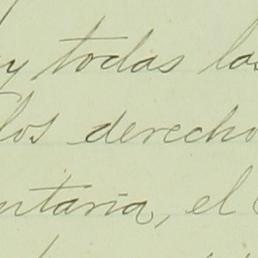 y todas las
los derecho
ntaria, el